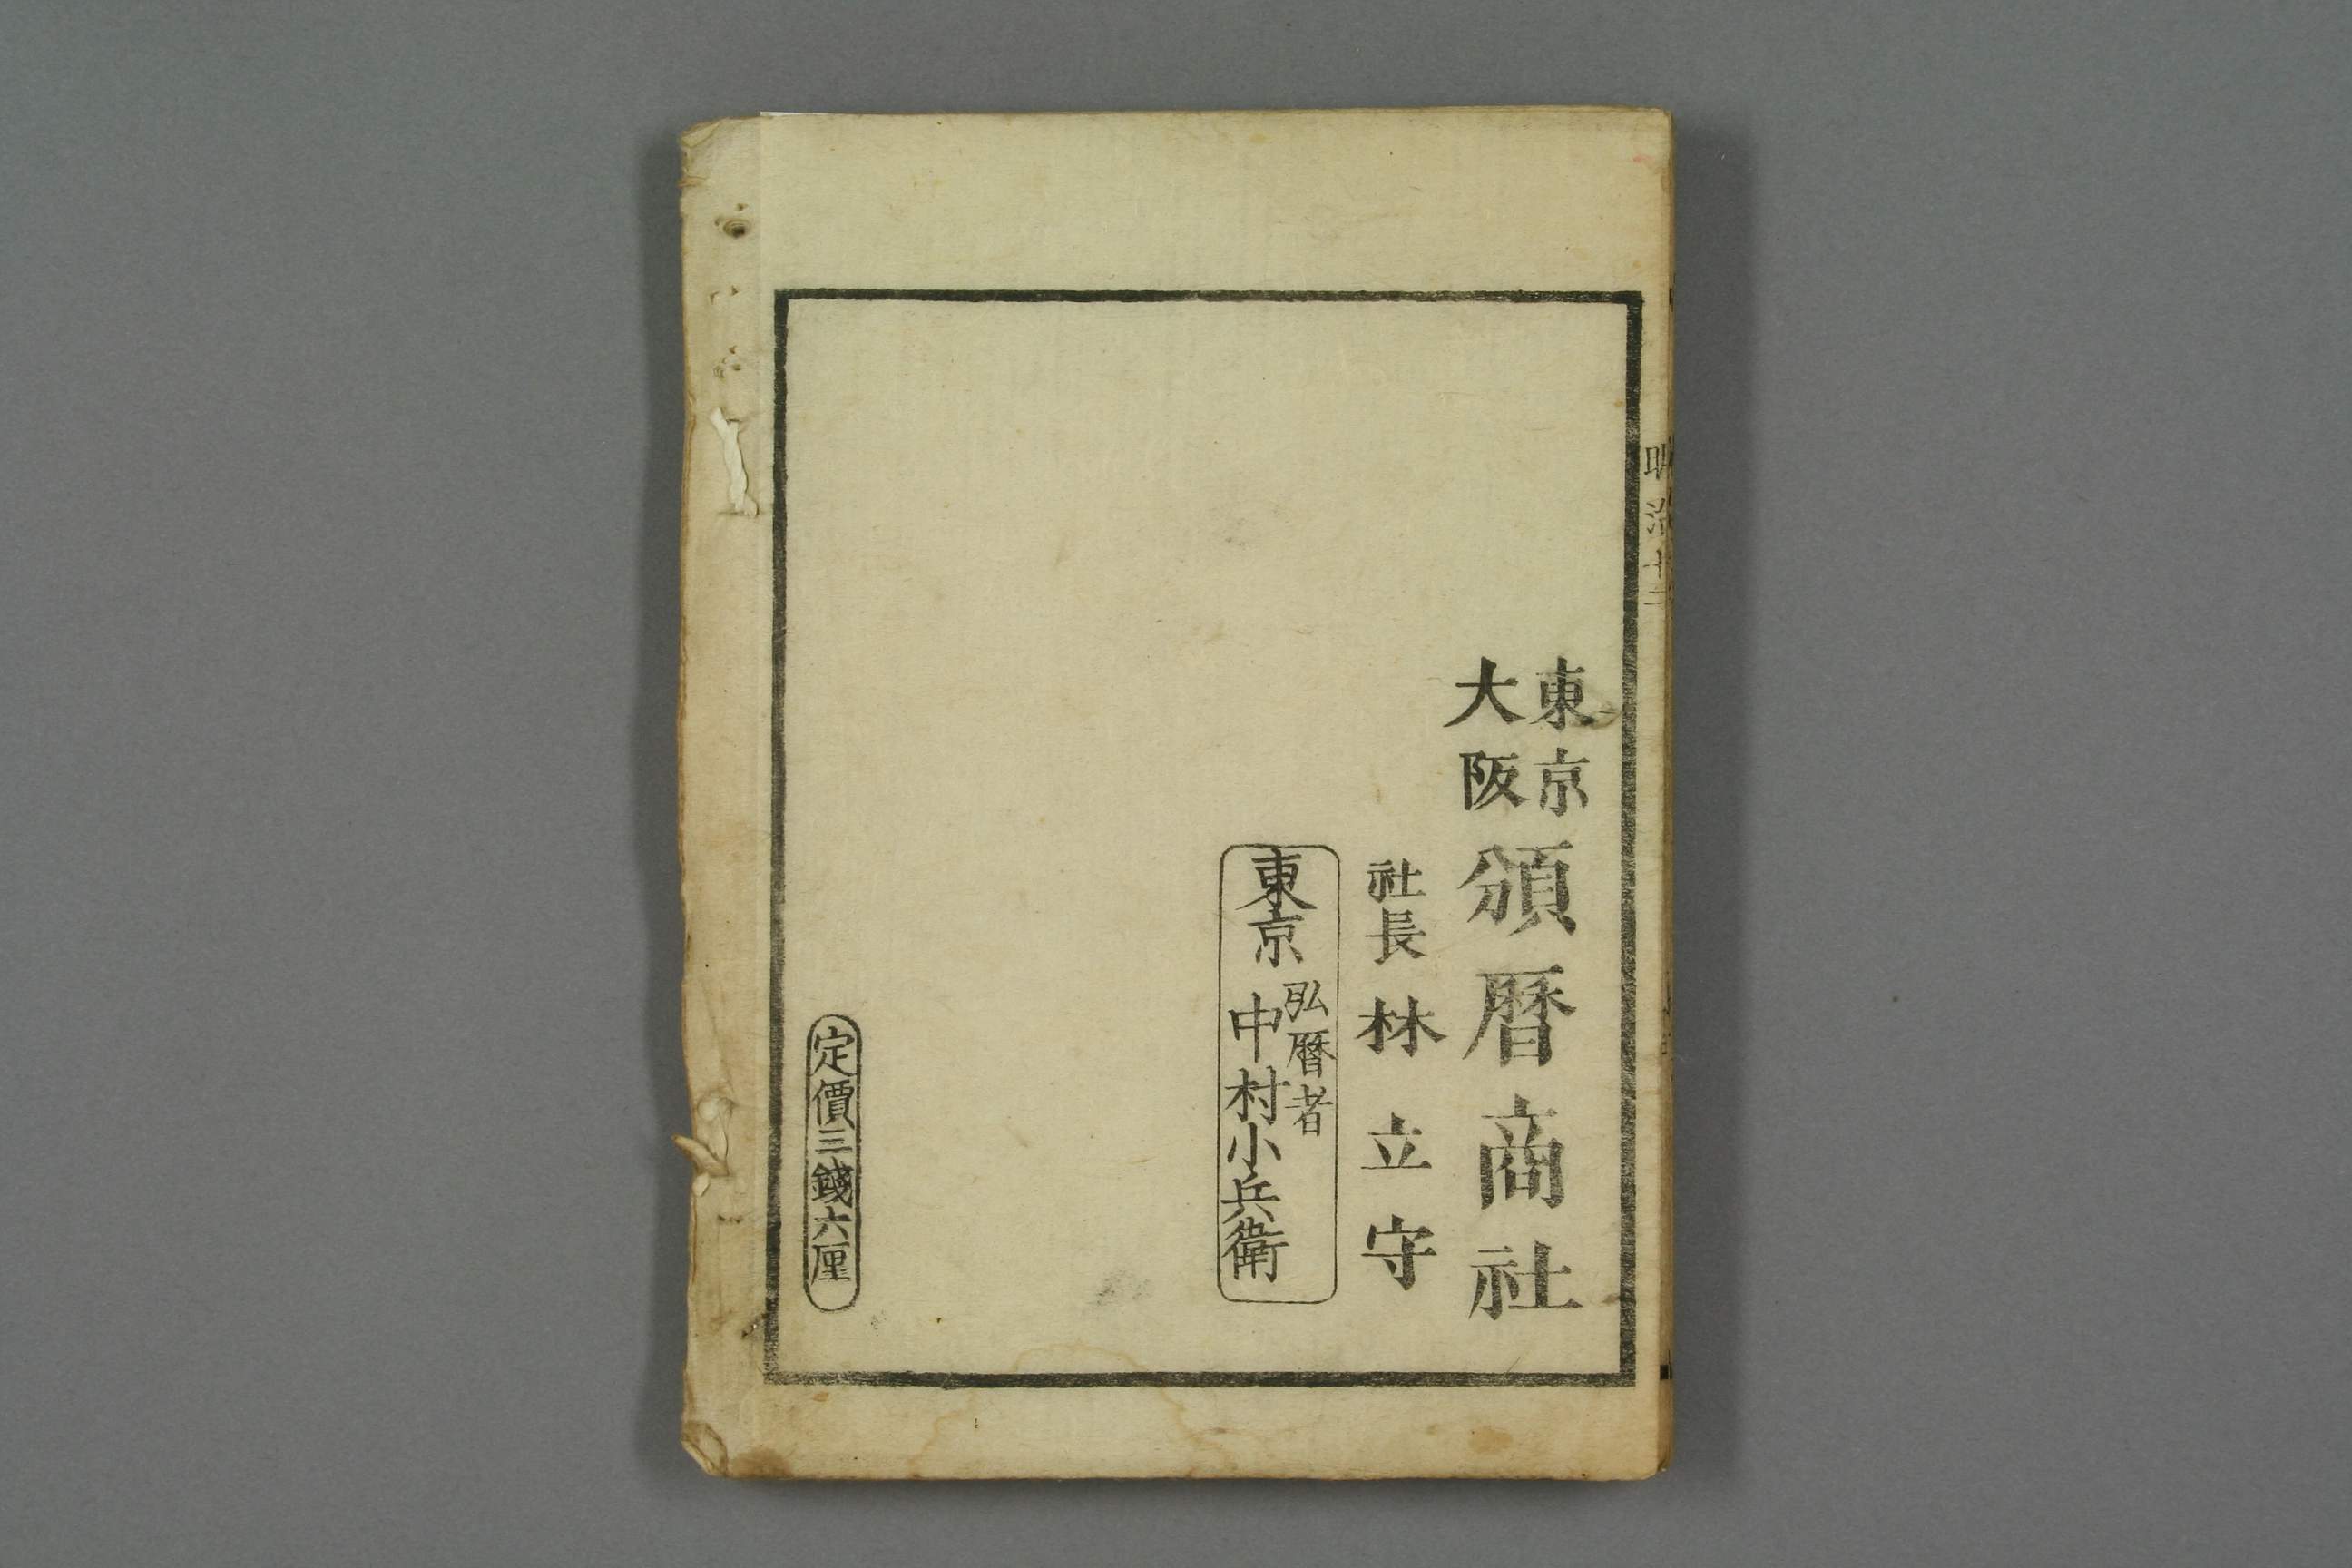 明治十二
東京
大阪
頒曆商社
社長 林立守
東京
弘曆者
中村小兵衛
定價三錢六厘